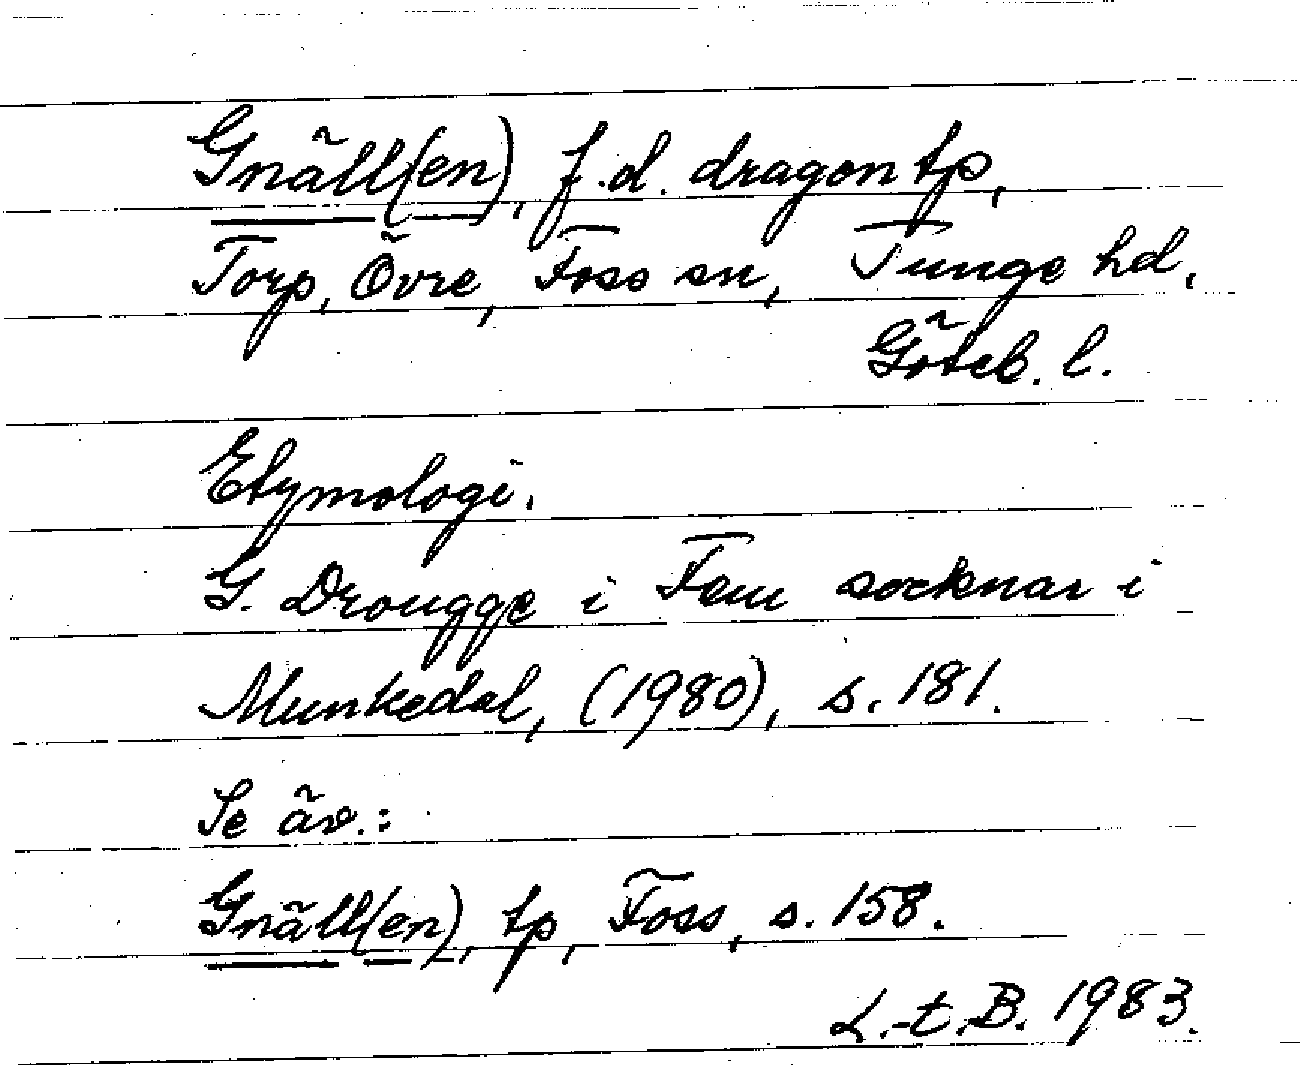 Gnäll(en), f.d. dragontp,
Torp, Övre, Foss sn, Tunge hd,
Göteb. l.
Etymologi.
G. Drougge i Fem socknar i
Munkedal, (1980), s. 181.
Se äv.:
Gnäll(en), tp, Foss, s. 158.
L.-t.B. 1983.